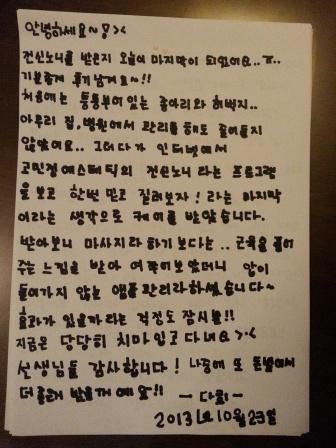 안녕하세요~!><
전신노니를 받은지 오늘이 마지막이 되었어요..ㅠ..
기분좋게 후기남겨요~!!
처음에는 퉁퉁부어있는 종아리와 허벅지..
아무리 집, 병원에서 관리를 해도 줄어들지
않았어요.. 그러다가 인터넷에서
고민정에스테틱의 전신노니 라는 프로그램
을 보고 한번 믿고 질러보자! 라는 마지막
이라는 생각으로 케어를 받았습니다.
받아보니 마사지라 하기 보다는.. 근육을 풀어
주는 느낌을 받아 여쭤어보았더니 암이
들어가지 않는 앰플관리라하셨습니다~
효과가 있을까라는 걱정도 잠시뿐!!
지금은 당당히 치마입고다녀요>.<
선생님들 감사합니다! 나중에 또 돈벌어서
더 좋은거 받을께예요!!
- 다희 -
2013년 10월 23일